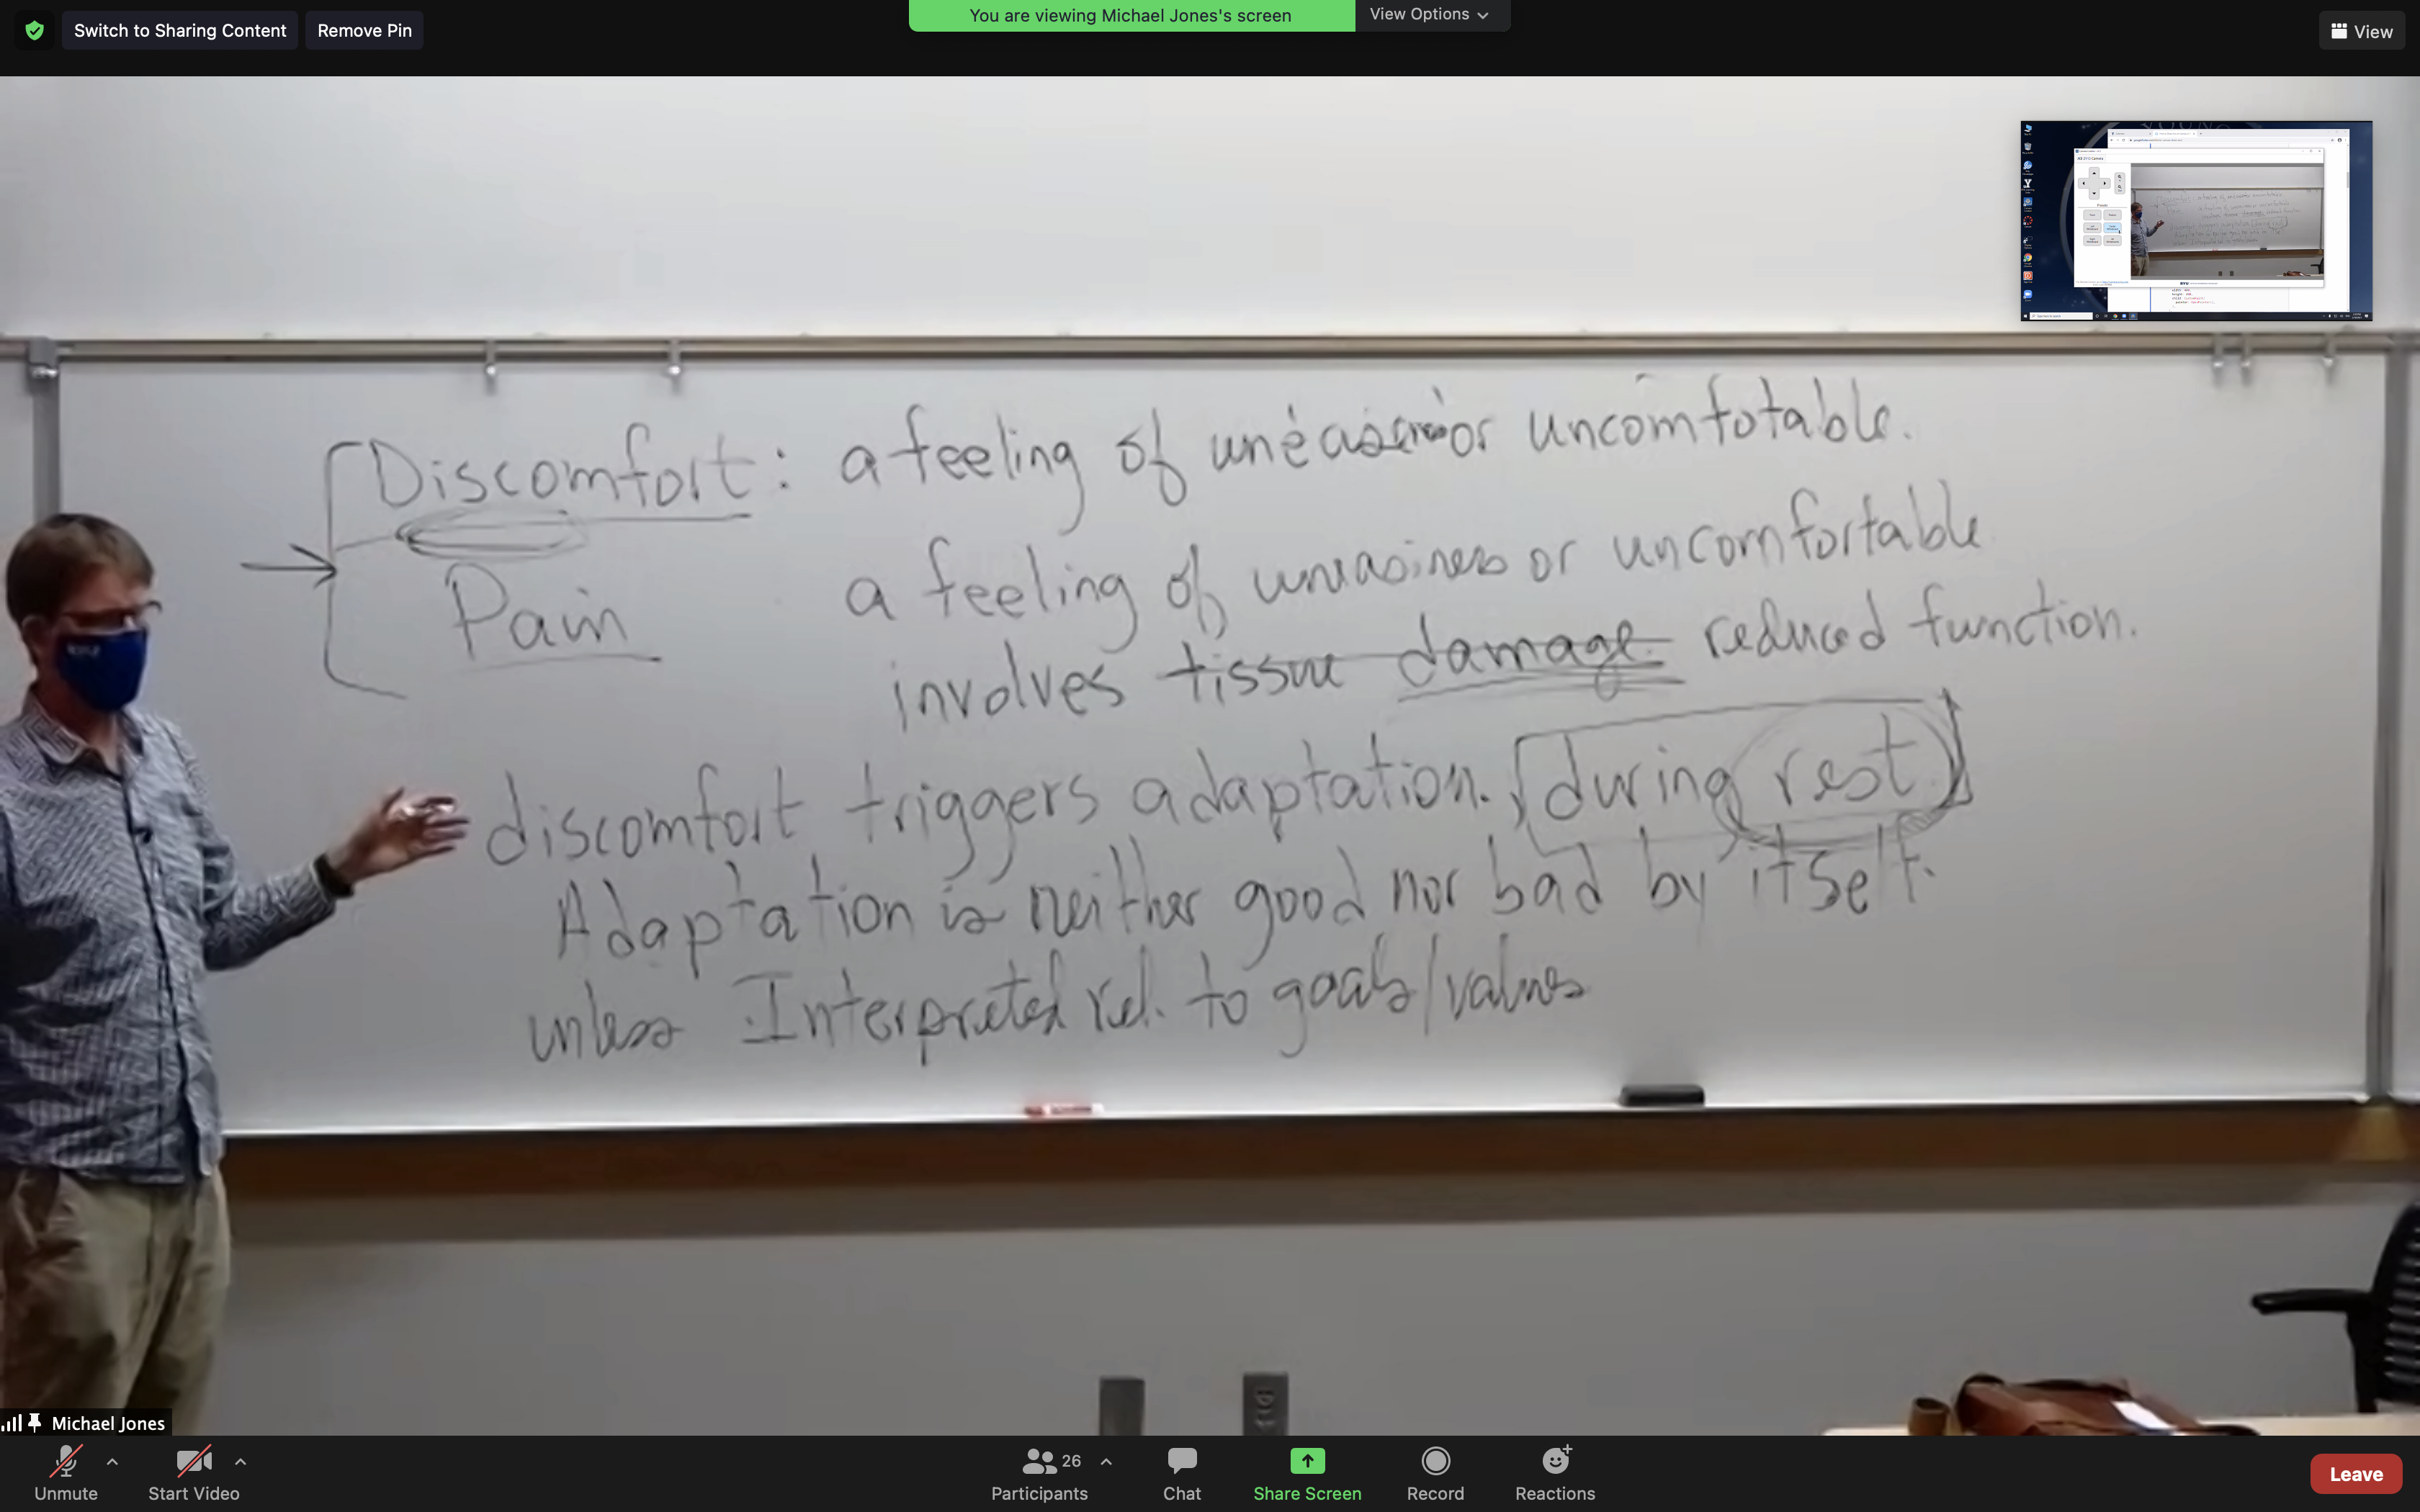 Switch to Sharing Content
Remove Pin
You are viewing Michael Jones's screen
View Options
View
Discomfort: a feeling of or uncomfotable.
Pain
a feeling of uneasiness or uncomfortable
involves tissue damage. reduced function.
discomfort triggers adaptation. during rest
Adaptation is neither good nor bad by itself.
unless Interpreted rel. to goals/values
Michael Jones
Unmute
Start Video
Participants
26
Chat
Share Screen
Record
Reactions
Leave